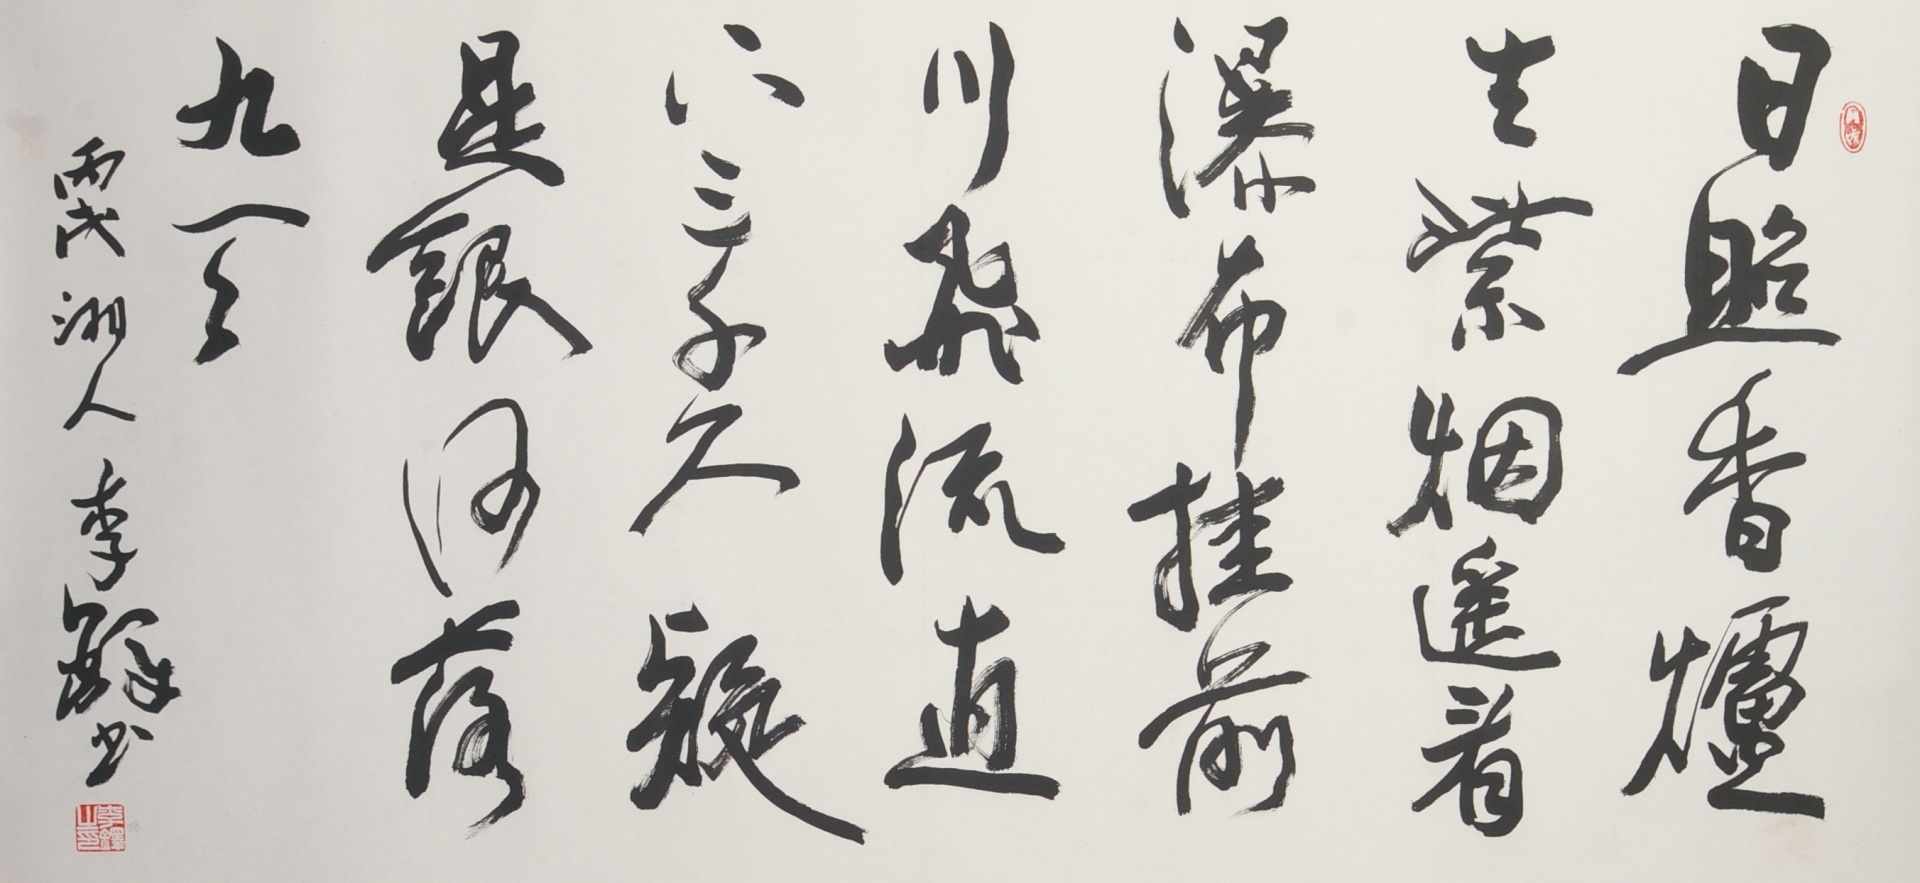 日照香爐
生紫烟遥看
瀑布挂前
川飛流直
下三千尺疑
是銀河落
九天
丙戌湘人李鐸书
李鐸之印